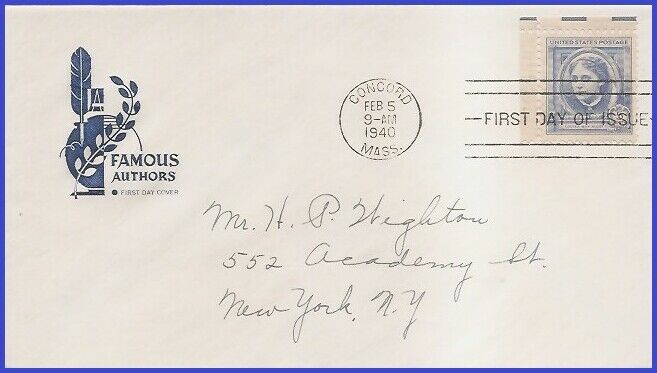 UNITED STATES POSTAGE
CONCORD
FEB 5
9-AM
1940
MASS.
FIRST DAY OF ISSUE
FAMOUS
AUTHORS
FIRST DAY COVER
Mr. H. P. Wighton
552 Academy St.
New York, N.Y